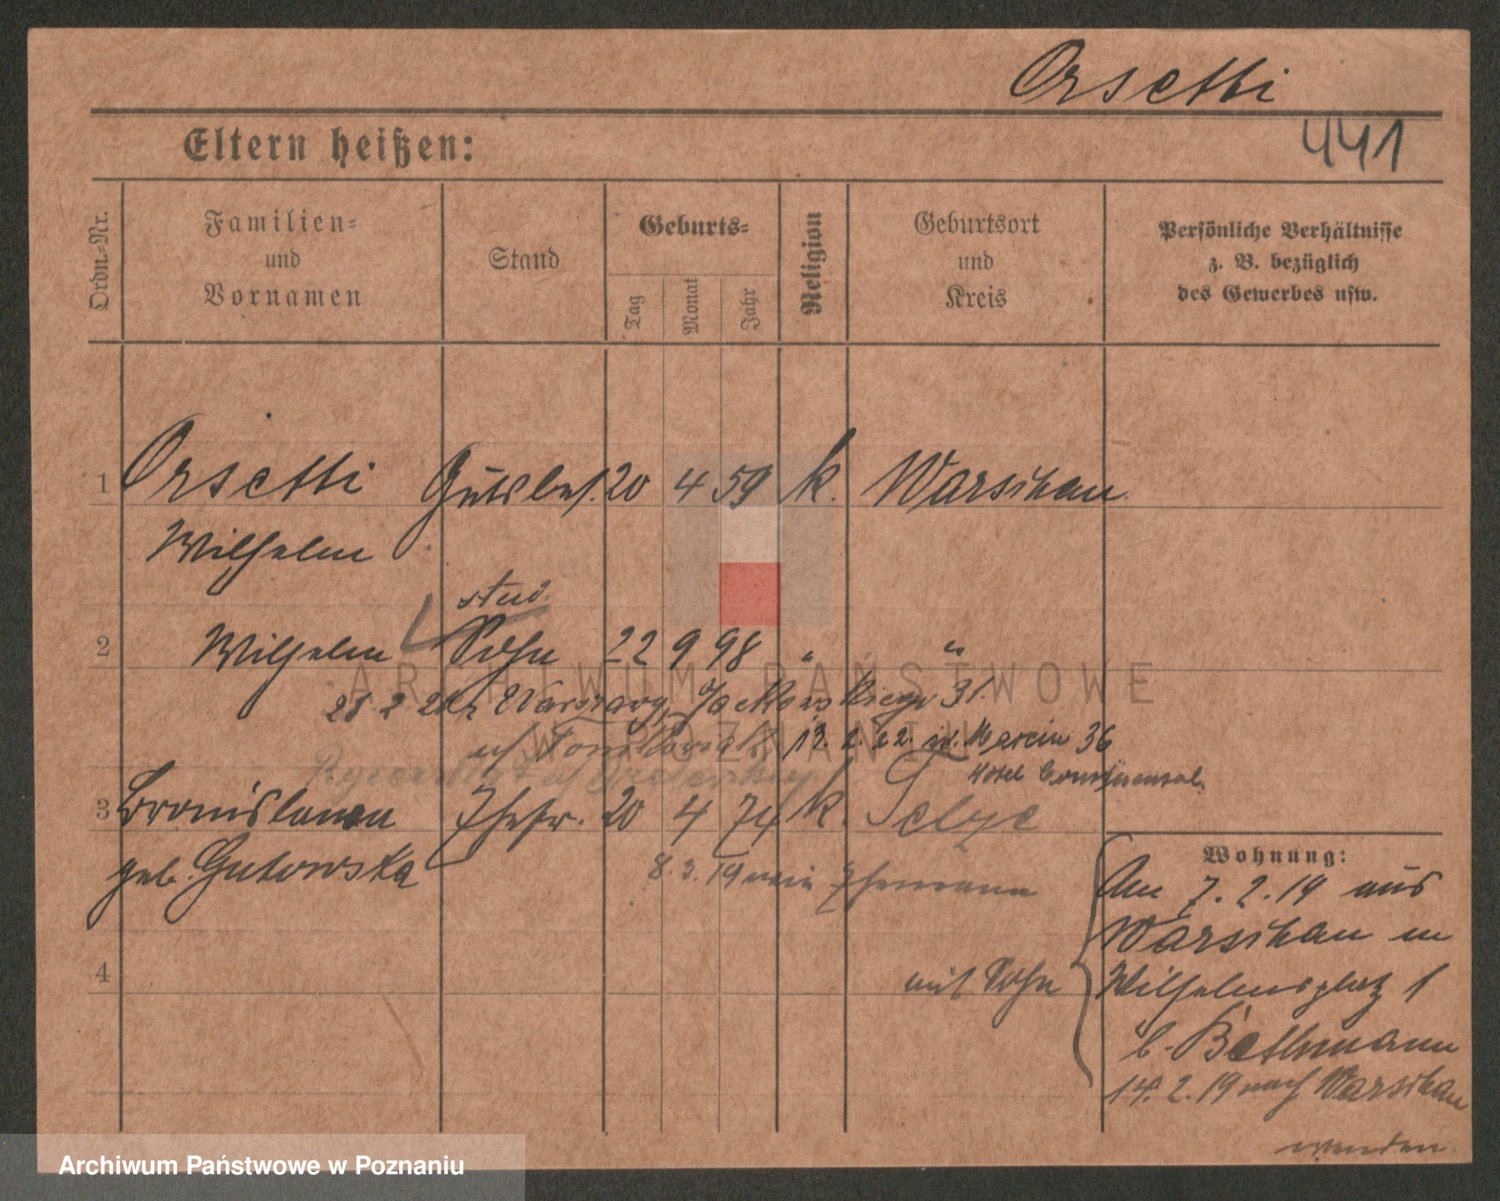 Orsetti
441
Eltern heißen:
Ordn.-Nr.
Familien-
und
Vornamen
Stand
Geburts-
Tag
Monat
Jahr
Religion
Geburtsort
und
Kreis
Persönliche Verhältnisse
z. B. bezüglich
des Gewerbes usw.
1 Orsetti Gutsbes. 20 4 59 k. Warschau
Wilhelm
stud.
2 Wilhelm Sohn 22 9 98 " "
ARCHIWUM PAŃSTWOWE
W POZNANIU
28 2 Warszawy, Jackowskiego 31.
13. 2. 22. św. Marcin 36
Hotel Continental
3 Bronislawa Ehefr. 20 4 74 k.
geb. Gutowska
8. 3. 19 Ehemann
Wohnung:
Am 7. 2. 19 aus
Warschau in
4 mit Sohn Wilhelmsplatz 1
b. Bethmann
14. 2. 19 nach Warschau
wenden
Archiwum Państwowe w Poznaniu